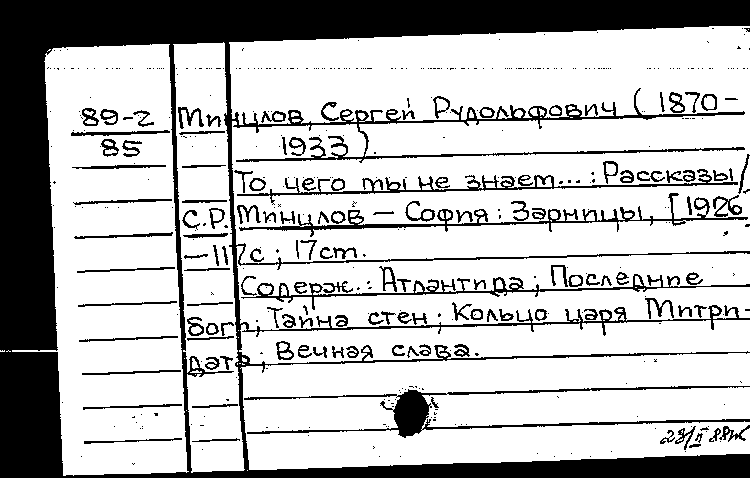 89-2 Минцлов, Сергей Рудольфович (1870-
85 1933).
То, чего ты не знаем...: Рассказы/
С.Р. Минцлов — София: Зарницы, [1926
— 117с; 17cm.
Содерж.: Атлантида; Последние
боги; Тайна стен; Кольцо царя Митри-
дата; Вечная слава.